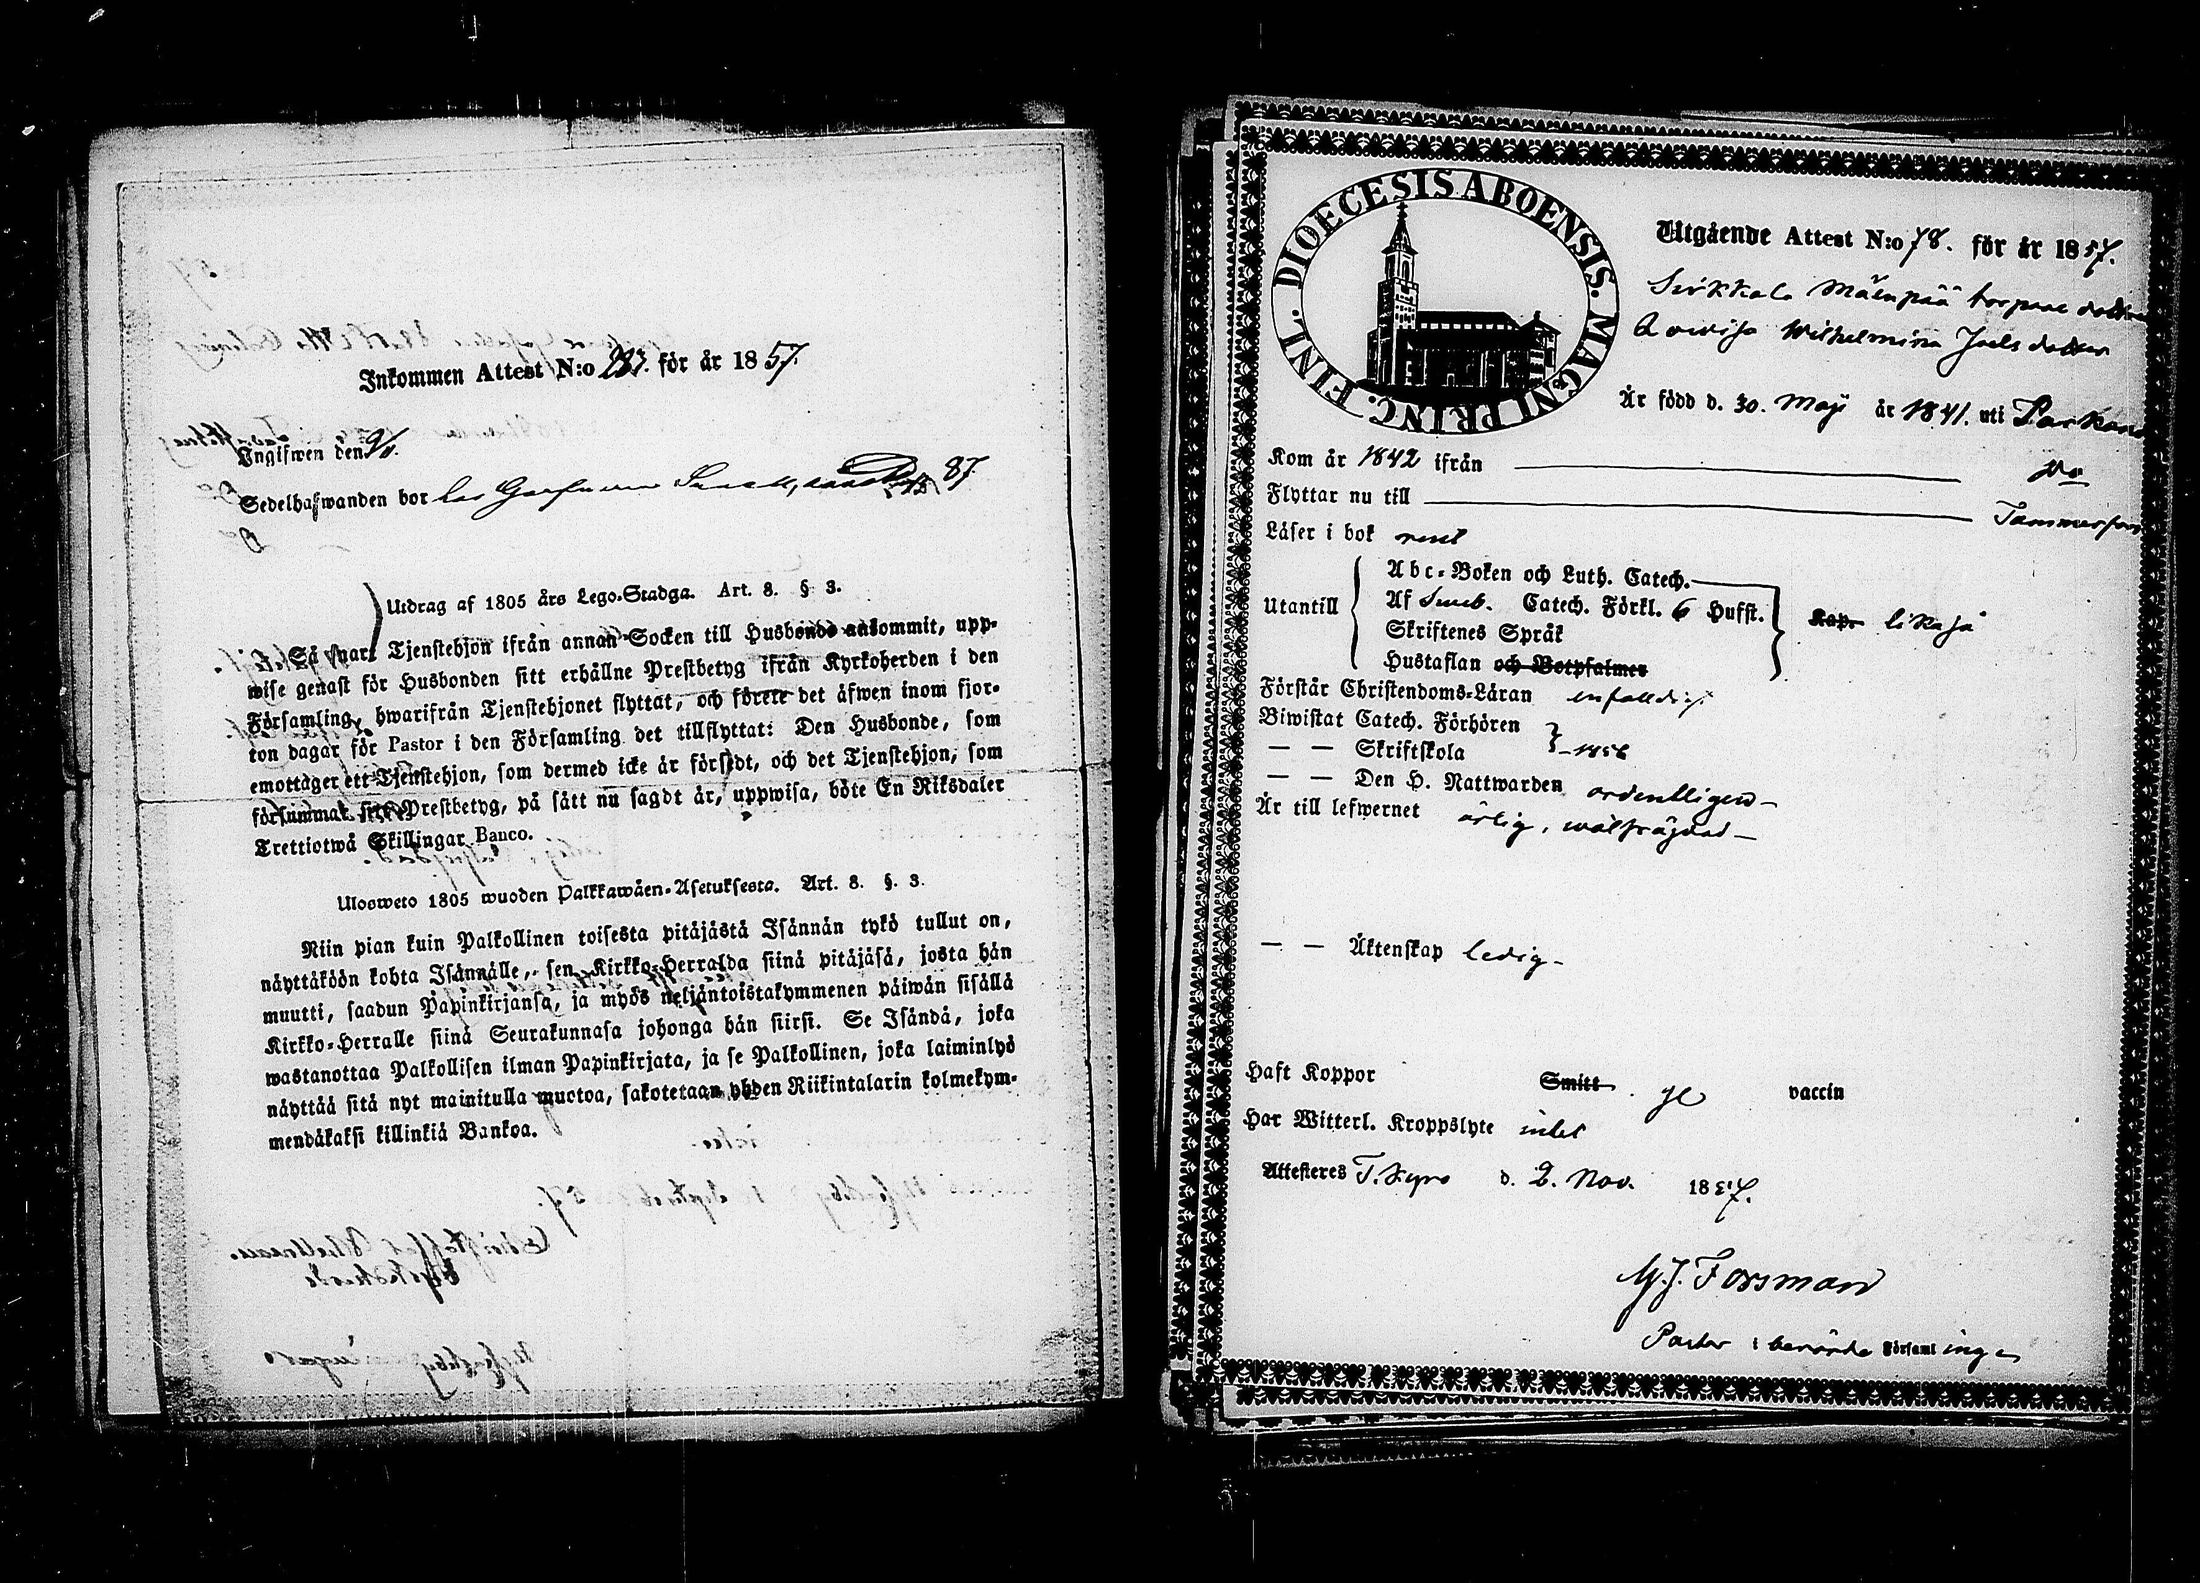 Inkommen Attest N:o 223. för år 1857.
Ingifwen den 9/11.
Sedelhafwanden bor hos 87.
Utdrag af 1805 års Lego-Stadga. Art. 8. § 3.
Så snart Tjenstehjon ifrån annan Socken till Husbonde ankommit, upp-
wise genast för Husbonden sitt erhållne Prestbetyg ifrån Kyrkoherden i den
Församling, hwarifrån Tjenstehjonet flyttat, och förete det äfwen inom fjor-
ton dagar för Pastor i den Församling det tillflyttat: Den Husbonde, som
emottager ett Tjenstehjon, som dermed icke är försedt, och det Tjenstehjon, som
försummat sitt Prestbetyg, på sätt nu sagdt är, uppwisa, böte En Riksdaler
Trettiotwå Skillingar Banco.
Ulosweto 1805 wuoden Palkkawäen-Asetuksesta. Art. 8. §. 3.
Niin pian kuin Palkollinen toisesta pitäjästä Isännän tykö tullut on,
näyttäköön kohta Isännälle, sen Kirkko-Herralda siinä pitäjäsä, josta hän
muutti, saadun Papinkirjansa, ja myös neljäntoistakymmenen päiwän sisällä
Kirkko-Herralle siinä Seurakunnasa johonga hän siirsi. Se Isändä, joka
wastanottaa Palkollisen ilman Papinkirjata, ja se Palkollinen, joka laiminlyö
näyttää sitä nyt mainitulla muotoa, sakotetaan yhden Riikintalarin kolmekym-
mendäkaksi killinkiä Bankoa.
DIOECESIS ABOENSIS. MAGNI PRINC. FINL.
Utgående Attest N:o 78. för år 1857.
Sirkkala Mäenpää torpare dotter
Lovisa Wilhelmina Joels dotter
Är född d. 30. Maji år 1841. uti Parkano
Kom år 1842 ifrån Do
Flyttar nu till Tammerfors
Läser i bok rent
Utantill
Abc-Boken och Luth. Catech.
Af Sweb. Catech. Förkl. 6 Hufst.
Skriftenes Språk
Hustaflan och Botpsalmer
Kap. likaså
Förstår Christendoms-Läran enfaldigt
Biwistat Catech. Förhören
— — Skriftskola 1856
— — Den H. Nattwarden ordentligen
Är till lefwernet ärlig, wälfrägdad
— — Äktenskap ledig
Haft Koppor Smitt. ge vaccin
Har Witterl. Kroppslyte intet
Attesteres T. Kyro d. 2. Nov. 1857.
M. J. Forsman
Pastor i berörda Församlingen